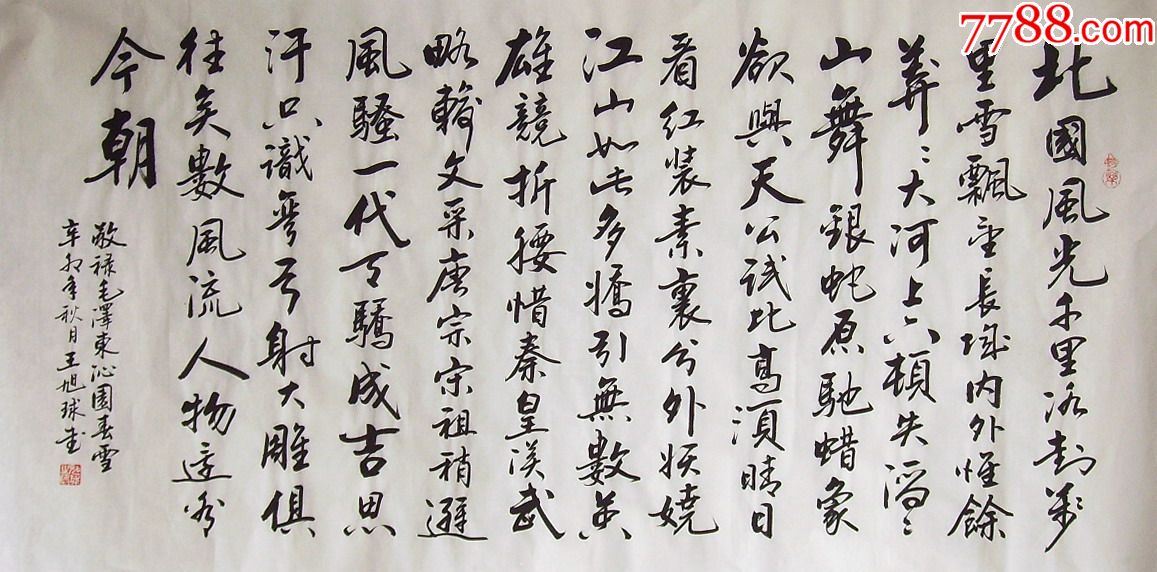 7788.com
北國風光千里冰封萬
里雪飄望長城內外惟餘
莽〻大河上下頓失滔〻
山舞銀蛇原馳蜡象
欲與天公試比高須晴日
看紅裝素裹分外妖嬈
江山如此多嬌引無數英
雄競折腰惜秦皇漢武
略輸文采唐宗宋祖稍遜
風騷一代天驕成吉思
汗只識彎弓射大雕俱
往矣數風流人物還看
今朝
敬祿毛澤東沁園春雪
辛卯年秋月王旭球書